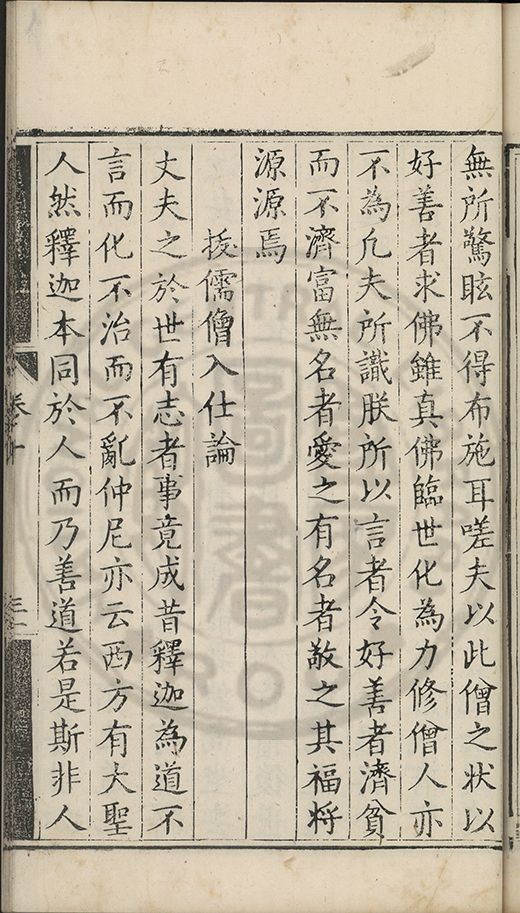 無所驚眩不得布施耳嗟夫以此僧之狀以
好善者求佛雖真佛臨世化為力修僧人亦
不為凢夫所識朕所以言者令好善者濟貧
而不濟富無名者愛之有名者敬之其福將
源源焉
拔儒僧入仕論
丈夫之於世有志者事竟成昔釋迦為道不
言而化不治而不亂仲尼亦云西方有大聖
人然釋迦本同於人而乃善道若是斯非人
卷十